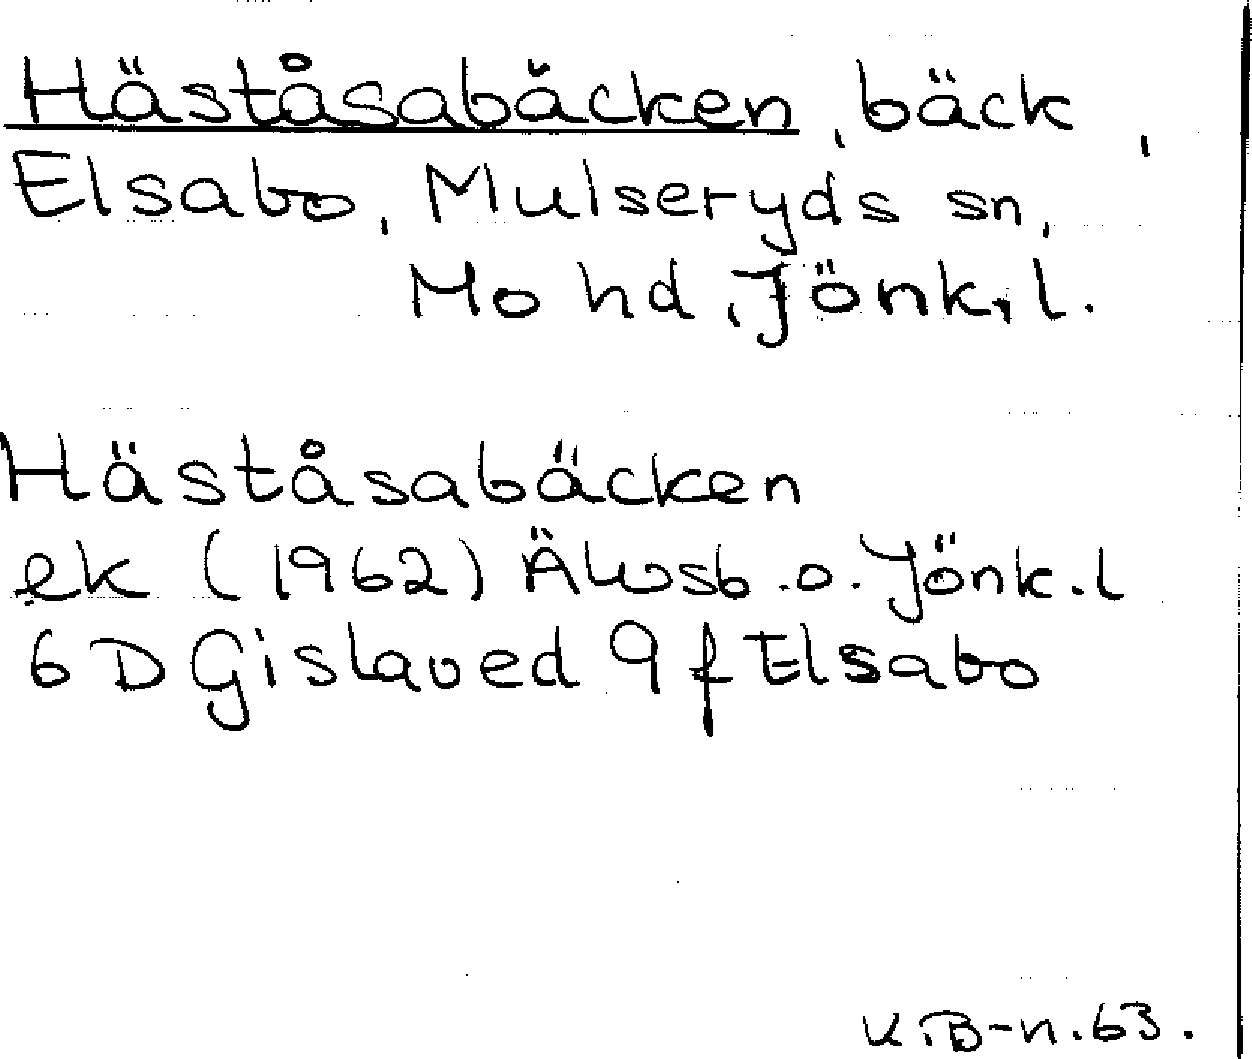 Häståsabäcken, bäck,
Elsabo, Mulseryds sn,
Mo hd, Jönk. l.
Häståsabäcken
ek (1962) Älvsb. o. Jönk. l
6 D Gislaved 9 f Elsabo
K.B-n. 63.